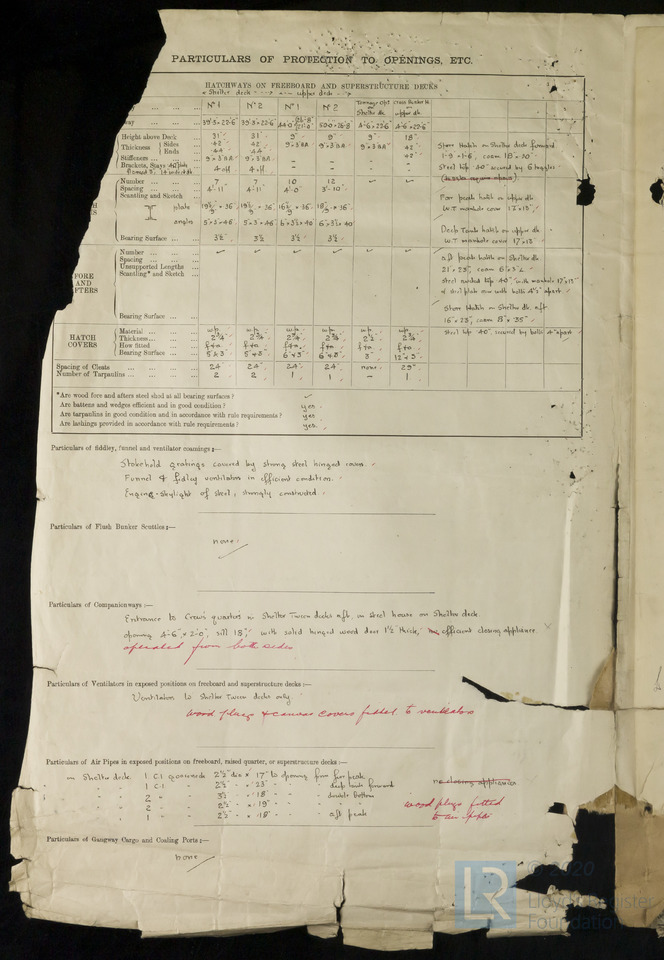 PARTICULARS OF PROTECTION TO OPENINGS, ETC.
HATCHWAYS ON FREEBOARD AND SUPERSTRUCTURE DECKS
Shelter deck upper deck
No 1 No 2 No 1 No 2 Tonnage Opg Shelter dk Cross Bunker H. upper dk
39'.3 × 22'.6 39'.3 × 22'.6 4'-6 × 22'.6 4'-6 × 22'.6
Height above Deck 31" 31" 9" 9" 9" 18"
Thickness Sides .42 .42 9" × 3" BA 9" × 3" BA 9" × 3" BA .42
Ends .44 .44 .42
Stiffeners 9" × 3" BA 9" × 3" BA - - - -
Brackets, Stays 4 off 4 off - - - -
Number 7 7 10 12
Spacing 4'-11" 4'-11" 4'-0" 3'-10"
Scantling and Sketch
plate
angles 5 × 3 × .46 5 × 3 × .46 6 × 3½ × .40 6 × 3½ × .40
Bearing Surface 3½ 3½ 3½ 3½
Store Hatch on Shelter deck forward
1-9 × 1-6, coam 18 × .30"
Steel top .30" secured by 6 toggles
Fore peak hatch on upper dk
W.T manhole cover 12" × 13"
Deep Tank hatch on upper dr
W.T manhole cover 17" × 13"
FORE AND AFTERS
Number
Spacing
Unsupported Lengths
Scantling* and Sketch
Bearing Surface
aft peak hatch on Shelter dk
21" × 23", coam
Steel top .40" with manhole 17" × 13"
steel plate over with bolts 4½" apart
Store Hatch on Shelter dk aft
16" × 23", coam 8" × .35"
Steel top .40" secured by bolts 4" apart
HATCH COVERS
Material w.p. w.p. w.p. w.p. w.p. w.p.
Thickness 2¾ 2¾ 2¾ 2¾ 2½ 2¾
How fitted f+a f+a f+a f+a f+a f+a
Bearing Surface 5" × 3" 5" × 3" 6" × 3" 6" × 3" 3" 12" × 3"
Spacing of Cleats 24 24 24" 24" none 29"
Number of Tarpaulins 2 2 1 1 - 1
*Are wood fore and afters steel shod at all bearing surfaces?
Are battens and wedges efficient and in good condition? yes.
Are tarpaulins in good condition and in accordance with rule requirements? yes
Are lashings provided in accordance with rule requirements? yes.
Particulars of fiddley, funnel and ventilator coamings:—
Stokehold gratings covered by strong steel hinged covers.
Funnel & fidley ventilators in efficient condition.
Engine skylight of steel, strongly constructed.
Particulars of Flush Bunker Scuttles:—
none
Particulars of Companionways:—
Entrance to Crew's quarters in Shelter Tween decks aft, in steel house on Shelter deck.
opening 4-6" × 2-0", sill 18", with solid hinged wood door 1½" thick, efficient closing appliance.
operated from both sides
Particulars of Ventilators in exposed positions on freeboard and superstructure decks:—
Ventilators to Shelter Tween decks only.
Wood plugs & canvas covers fitted to ventilators
Particulars of Air Pipes in exposed positions on freeboard, raised quarter, or superstructure decks:—
on Shelter deck 1 C.I goosneck 2½" dia × 17" to opening from fore peak no closing appliances
1 C.I 2½" × 23" deep tank forward
2 3½" × 18" double bottom
2 2½" × 19" wood plugs fitted
1 2½" × 18" aft peak to air pipes
Particulars of Gangway Cargo and Coaling Ports:—
none
LR
© 2020
Lloyd's Register
Foundation